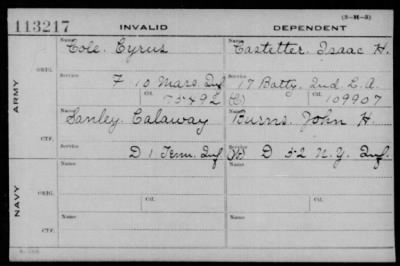 (3-H-3)
113217 INVALID DEPENDENT
Name: Name:
Cole. Cyrus Castetter. Isaac H.
ORIG. Service Service
F 10 Mass. Inf 17 Batty. Ind L.A.
Ctf. Ctf.
7549 (C) 109907
ARMY
Name: Name:
Sanley. Calaway Burns. John H.
Service Service
CTF. D 1 Tenn. Inf. D 52 N.Y. Inf.
NAVY
Name Name
ORIG. Ctf. Ctf.
Name Name
CTF.